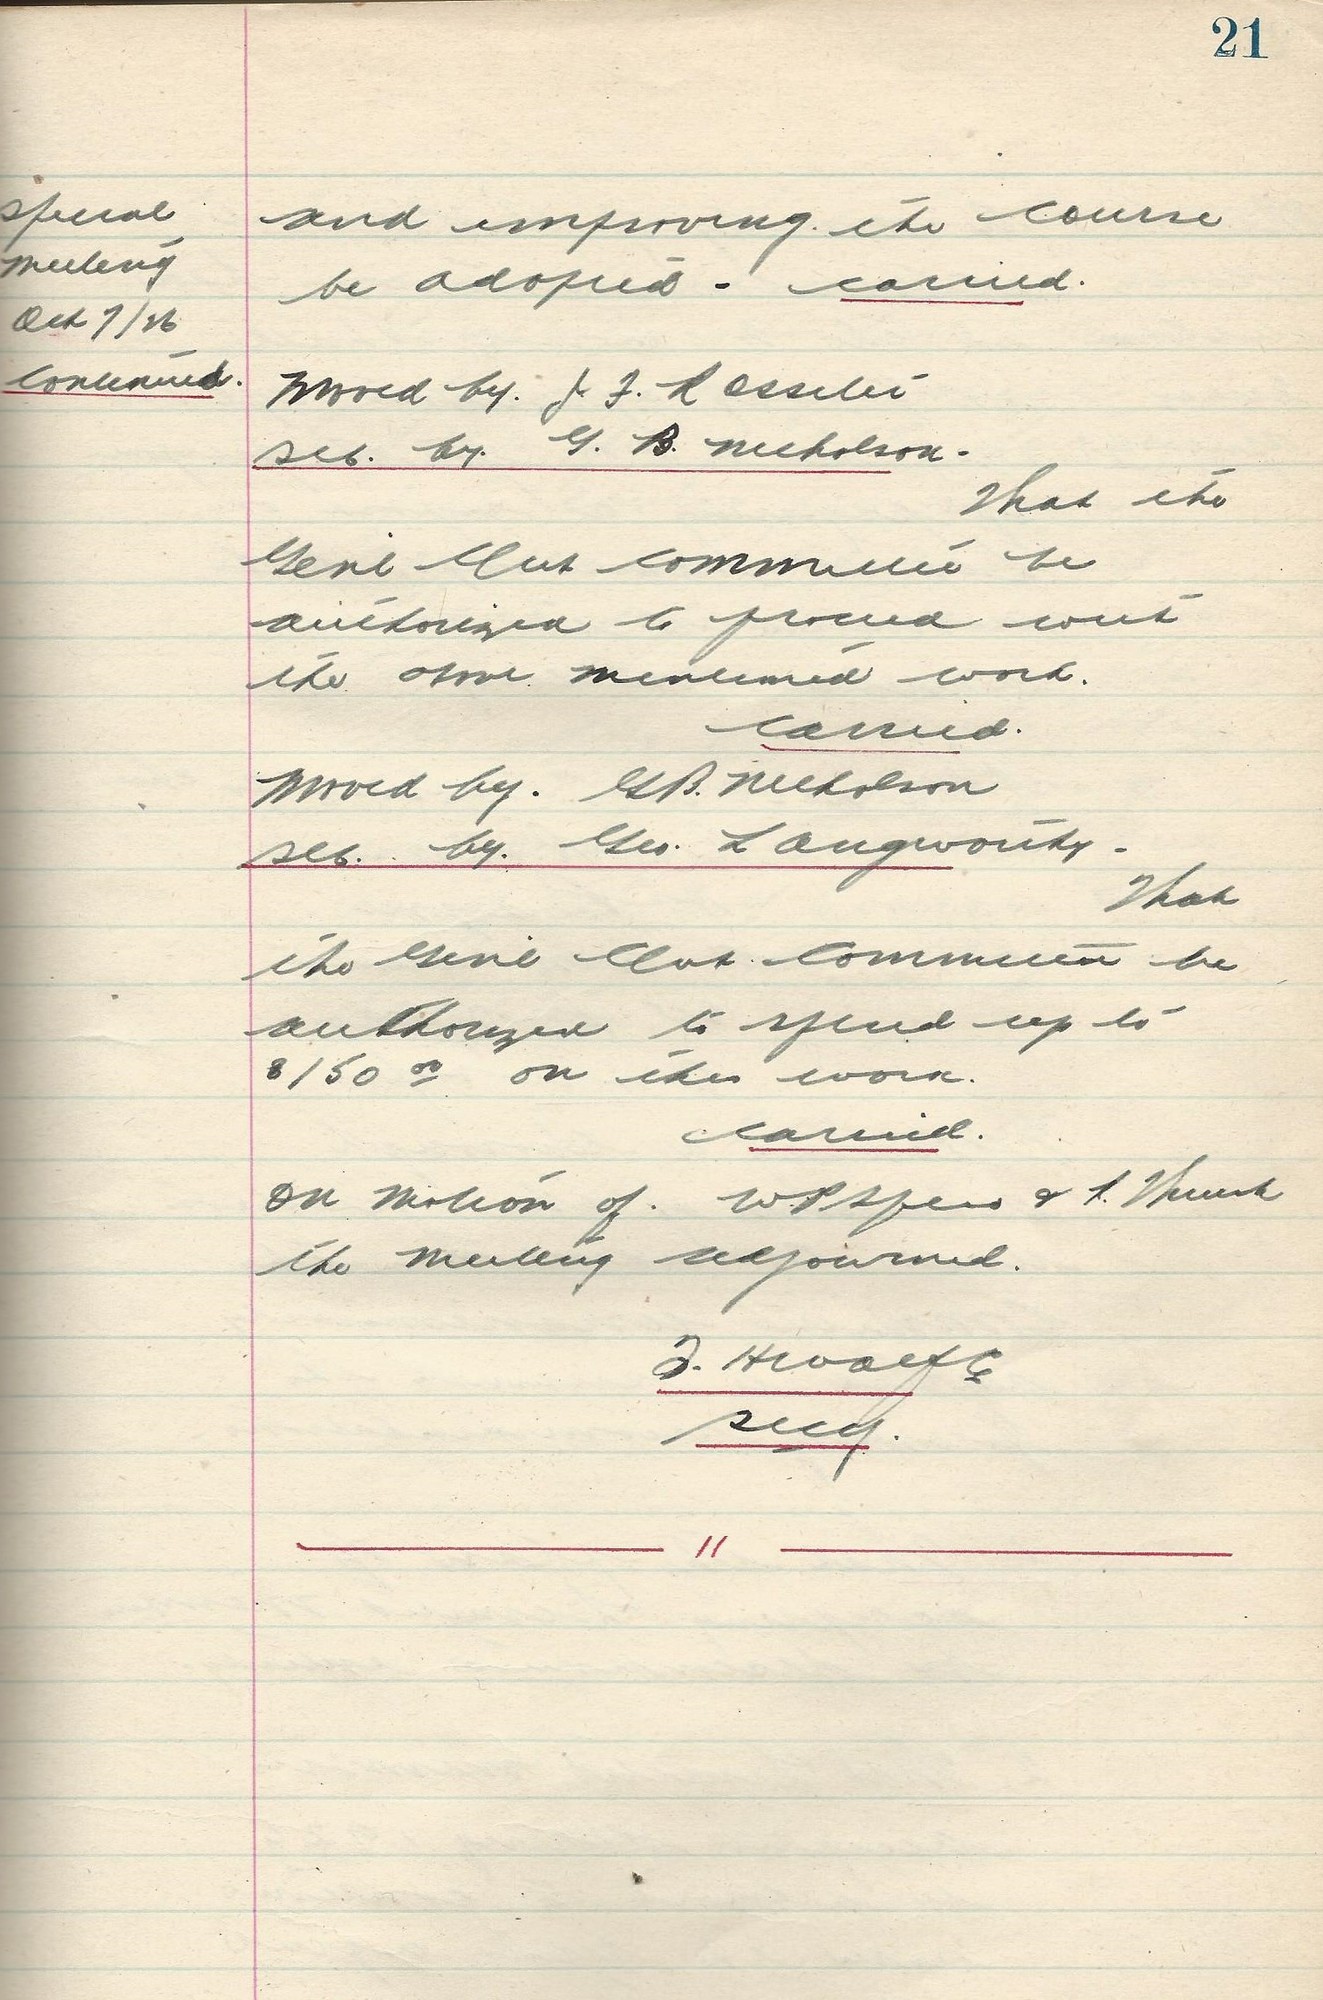 21
Special
Meeting
Oct 7/26
Continued.
and improving the course
be adopted - carried.
Moved by. J. F. Rosseter
sec. by. G. B. Nicholson -
That the
Gen'l Mgt Committee be
authorized to proceed with
the above mentioned work.
carried.
Moved by. G B. Nicholson
sec. by. Geo. Langworthy -
That
the Gen'l Mgt. Committee be
authorized to spend up to
$150 00 on this work.
carried.
On motion of. W. P Speers &
the meeting adjourned.
F.
Secy.
"